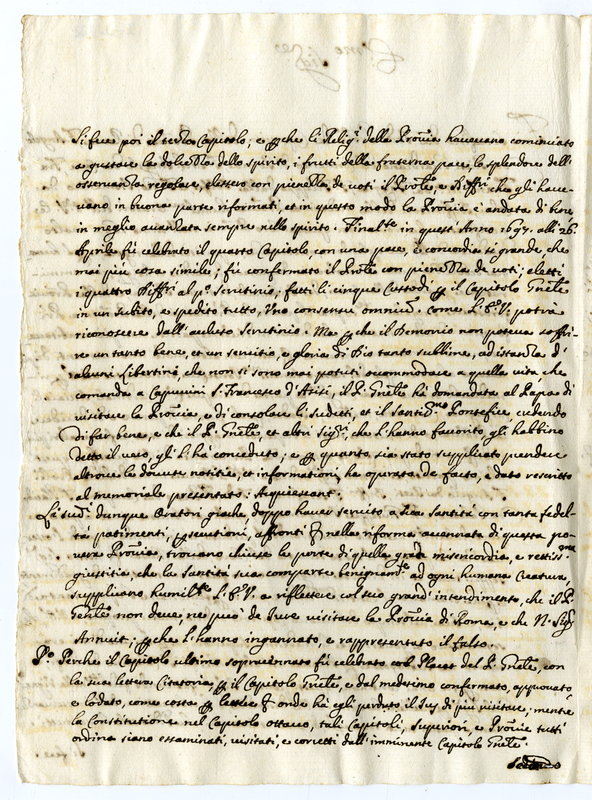 Si fece poi il terzo Capitolo; e p̱che li Relig.i della Prou̅ia haueuano cominciato
a gustare la dolcezza dello spirito, i frutti della fraterna pace, lo splendore dell'
osseruanza regolare, elessero con pienezza de uoti il Prou̅le, e Diff.ri che gli haue-
uano in buona parte riformati, et in questo modo la Prou̅ia è andata di bene
in meglio auanzata sempre nello spirito. Finalm.te in quest'Anno 1697. all' 26.
Aprile fù celebrato il quarto Capitolo, con una pace, e concordia sì grande, che
mai più cosa simile; fù confermato il Prou̅le con pienezza de uoti; eletti
i quattro Diff.ri al p.o scrutinio; fatti li cinque Custodi p̱ il Capitolo Gn̅le
in un subito, e spedito tutto, Uno consensu omnium. come S. E. V. potrà
riconoscere dall' auluso Scrutinio. Ma p̱che il Demonio non poteua soffri-
re un tanto bene, et un seruitio, e gloria di Dio tanto sublime, ad istanza d'
alcuni Libertini, che non si sono mai potuti accommodare a quella uita, che
comanda a Capucini S. Francesco d'Asisi, il P. Gn̅le hà domandata al Papa di
visitare la Prou̅ia, e di consolare li sudetti, et il Santiss.mo Pontefice credendo
di far bene, e che il P. Gn̅le, et altri Sig.ri, che l'hanno fauorito, gli habbino
detto il uero, gli l'hà conceduto; e p̱ quanto sia stato supplicato prendere
altroue le douute notitie, et informationi, ha operato de facto, e dato rescritto
al memoriale presentato: Acquiescant.
Li sud.i dunque Oratori giache, doppo hauer seruito a Sua Santità con tanta fedel-
tà patimenti, p̱secutioni, affronti &c nella riforma auanzata di questa po-
uera Prou̅ia, trouano chiuse le porte di quella gran misericordia, e rettiss.ma
giustitia, che la Santità sua comparte benignam.te ad ogni humana Creatura,
supplicano humilm.te S. E. V. a riflettere col suo grand' intendimento, che il P.
Gn̅le non deue, ne può de Jure visitare la Prou̅ia di Roma, e che N. Sig.re
Annuit; p̱che l'hanno ingannato, e rappresentato il falso.
P.o Perche il Capitolo ultimo sopraccennato fù celebrato col Placet del P. Gn̅le, con
la sua lettera Citatoria p̱ il Capitolo Gn̅le, e dal medesimo confermato, approuato,
e lodato, come costa p̱ lettere &c onde hà egli perduto il Jus di più visitare; mentre
la Constitutione nel Capitolo ottauo, tali Capitoli, Superiori, e Prou̅ie tutti
ordina siano essaminati, visitati, e corretti dall' imminente Capitolo Gn̅le.